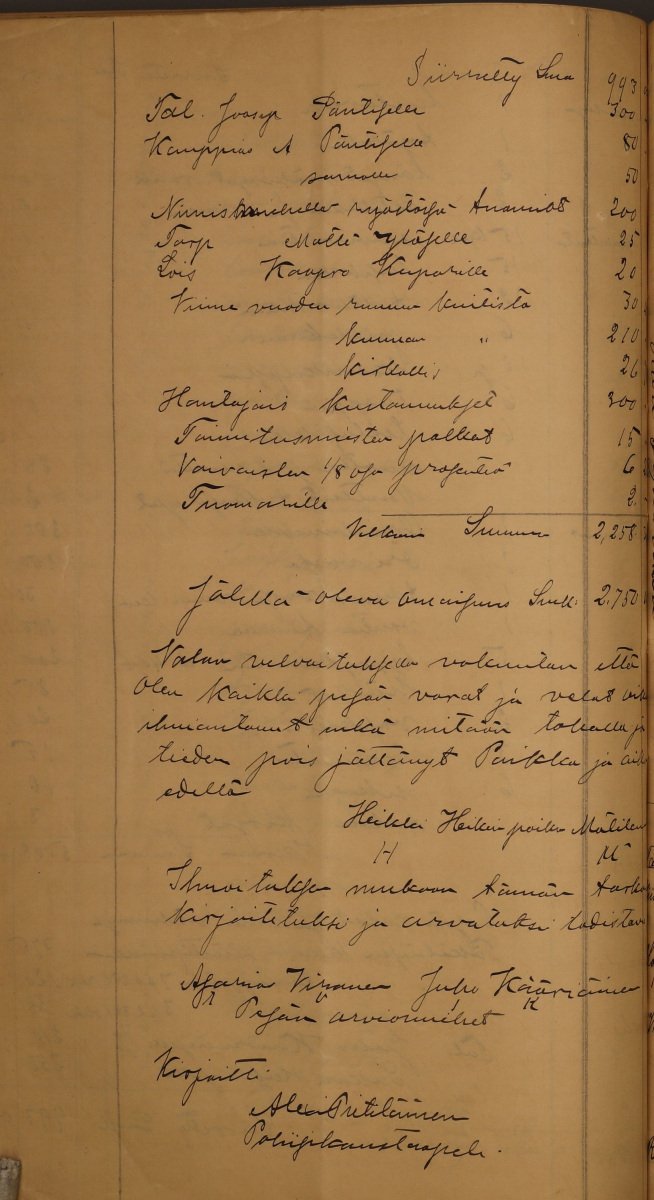 Siirretty Sma 993
Tal. Joosep Päntiselle 300
Kauppias A Päntiselle 80
samalle 50
Nimismiehelle ryöstöjä Ananiat 200
Torp Matti Ylöselle 25
Lois Kaapro Kuparille 20
Viime vuoden ruunun kuitista 30
kunnan " 210
kirkollis 26
Hautajais kustannukset 300
Toimitusmiesten palkat 15
Vaivaisten 1/8 osa prosentia 6
Tuomarille 2
Velkain Summa 2,258
Jälellä oleva omaisuus Smk 2,750
Valan velvoituksella vakuutan että
olen kaikki pesän varat ja velat oik
ilmiantanut enkä mitään tahalla ja
tieden pois jättänyt Paikka ja aik
edellä
Heikki Heikin poika
H M
Ilmoituksen mukaan tämän tark
kirjoitetuksi ja arvatuksi todistav
Asaria Juho Kääriäinen
Pesän arviomiehet
Kirjoitti
Alex Pitkäinen
Poliisikonstaapeli.